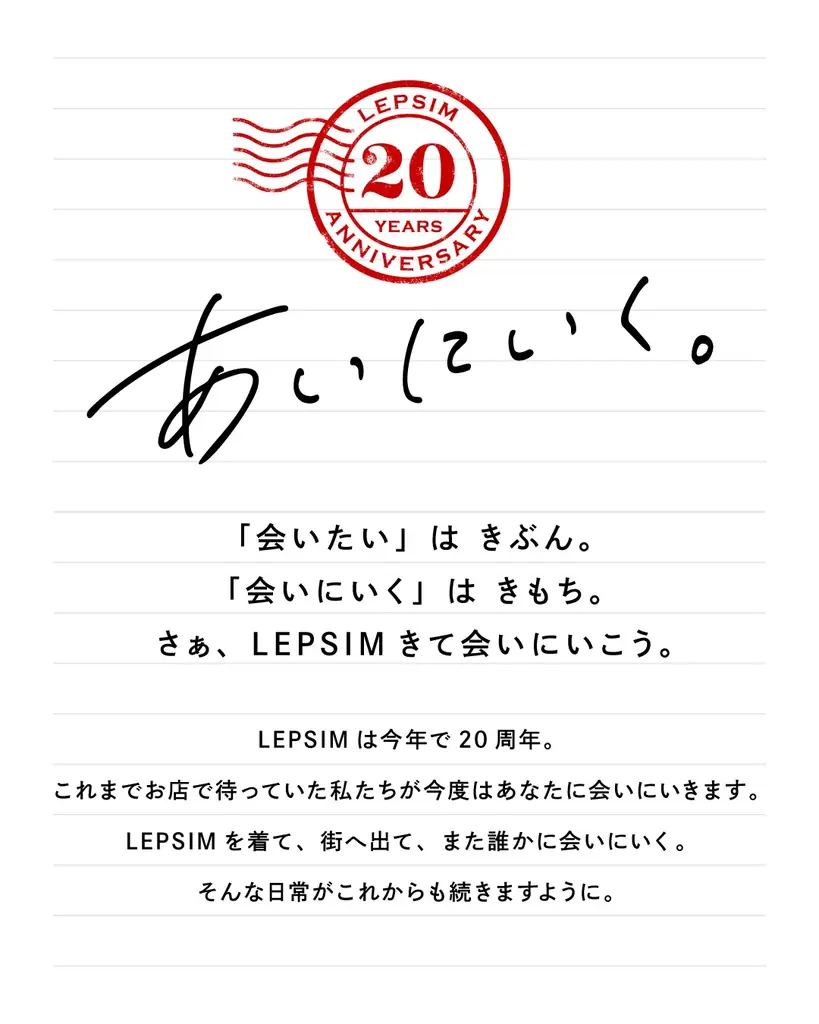 LEPSIM
20
YEARS
ANNIVERSARY
あいにいく。
「会いたい」は きぶん。
「会いにいく」は きもち。
さぁ、LEPSIMきて会いにいこう。
LEPSIMは今年で20周年。
これまでお店で待っていた私たちが今度はあなたに会いにいきます。
LEPSIMを着て、街へ出て、また誰かに会いにいく。
そんな日常がこれからも続きますように。